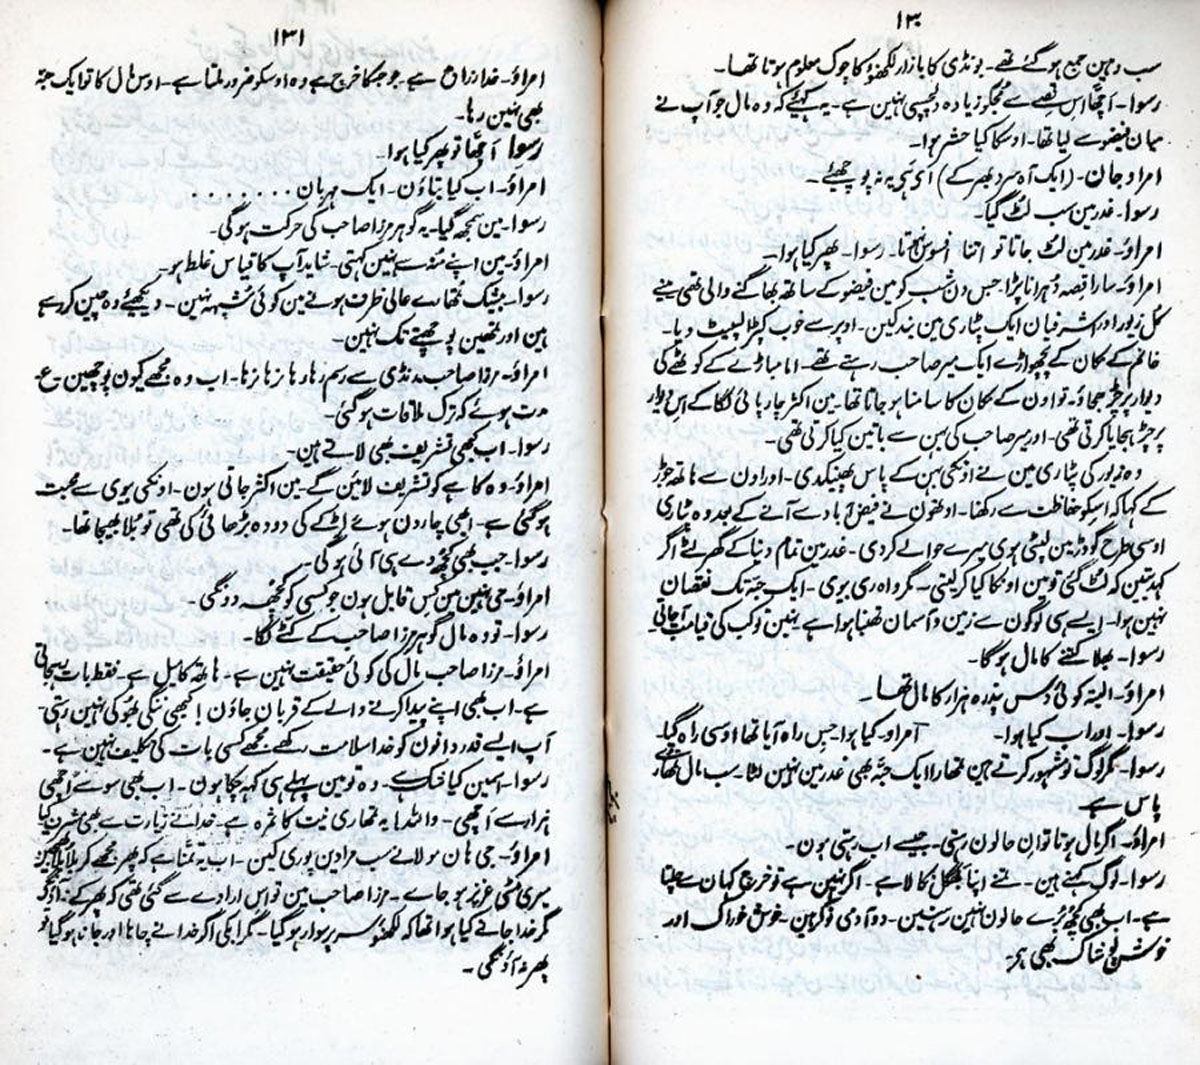 ۱۳۰
سب وہین جمع ہو گئے تھے۔ بونڈی کا بازار لکھنؤ کا چوک معلوم ہوتا تھا۔
رسوا۔ اچھا اس قصے سے مجکو زیادہ دلچسپی نہین ہے۔ یہ کہیے کہ وہ مال جو آپ نے
میان فیضو سے لیا تھا۔ اوسکا کیا حشر ہوا۔
امراو جان۔ (ایک آہ سرد بھر کے) اے ہی یہ نہ پوچھئے۔
رسوا۔ غدر مین سب لٹ گیا۔
امراؤ۔ غدر مین لٹ جاتا تو اتنا افسوس نہوتا۔ رسوا۔ پھر کیا ہوا۔
امراؤ۔ سارا قصہ دُہرانا پڑا جس دن شب کو مین فیضو کے ساتھ بھاگنے والی تھی مینے
کُل زیور اور اشرفیان ایک پٹاری مین بند کین۔ اوپر سے خوب کپڑا لپیٹ دیا۔
خانم کے مکان کے پچھواڑے ایک میر صاحب رہتے تھے۔ امامباڑے کے کوٹھے کی
دیوار پر چڑھ جاؤ۔ تو اون کے مکان کا سامنا ہو جاتا تھا۔ مین اکثر چارپائی لگا کے اس دیوار
پر چڑھجایا کرتی تھی۔ اور میر صاحب کی بہن سے باتین کیا کرتی تھی۔
وہ زیور کی پٹاری مین نے اونکی بہن کے پاس پھینکدی۔ اور اون سے ہاتھ جوڑ
کے کہا کہ اسکو حفاظت سے رکھنا۔ اونھون نے فیض آباد سے آنے کے بعد وہ پٹاری
اوسی طرح گوڈر مین لپٹی ہوی میرے حوالے کر دی۔ غدر مین تمام دنیا کے گھر لٹے اگر
کہدیتین کہ لٹ گئی تو مین اونکا کیا کر لیتی۔ مگر واہ ری بوی۔ ایک حبّہ تک نقصان
نہین ہوا۔ ایسے ہی لوگون سے زمین و آسمان تھنبا ہوا ہے نہین تو کب کی قیامت آجاتی۔
رسوا۔ بھلا کتنے کا مال ہوگا۔
امراؤ۔ البتہ کوئی دس پندرہ ہزار کا مال تھا۔
رسوا۔ اور اب کیا ہوا۔ امراو۔ کیا ہوا۔ جس راہ آیا تھا اوسی راہ گیا۔
رسوا۔ مگر لوگ تو مشہور کرتے ہین تمھارا ایک حبّہ بھی غدر مین نہین لٹا۔ سب مال تمھارے
پاس ہے
امراؤ۔ اگر مال ہوتا تو ان حالون رہتی۔ جیسے اب رہتی ہون۔
رسوا۔ لوگ کہتے ہین۔ تمنے اپنا بھگل نکالا ہے۔ اگر نہین ہے تو خرچ کہان سے چلتا
ہے۔ اب بھی کچھ بُرے حالون نہین رہتین۔ دو آدمی نوکر ہین۔ خوش خوراک اور
خوش پوشاک بھی ہو۔
۱۳۱
امراؤ۔ خدا رزاق ہے۔ جو جسکا خرچ ہے وہ اوسکو ضرور ملتا ہے۔ اوس مال کا تو ایک حبّہ
بھی نہین رہا۔
رسوا اچھّا تو پھر کیا ہوا۔
امراؤ۔ اب کیا بتاؤن۔ ایک مہربان ........
رسوا۔ مین سمجھ گیا۔ یہ گوہر مرزا صاحب کی حرکت ہوگی۔
امراؤ۔ مین اپنے منہ سے نہین کہتی۔ شاید آپ کا قیاس غلط ہو۔
رسوا۔ بیشک تمھارے عالی ظرف ہونے مین کوئی شبہہ نہین۔ دیکھئے وہ چین کر رہے
ہین اور تمھین پوچھتے تک نہین۔
امراؤ۔ مرزا صاحب رنڈی سے رسم رہا رہا نرہا نرہا۔ اب وہ مجھے کیون پوچھین۔ ع۔
مدت ہوئے کہ ترک ملاقات ہو گئی۔
رسوا۔ اب کبھی تشریف بھی لاتے ہین۔
امراؤ۔ وہ کاہے کو تشریف لائین گے۔ مین اکثر جاتی ہون۔ اونکی بیوی سے محبت
ہو گئی ہے۔ ابھی چار دن ہوئے لڑکے کی دودھ بڑھائی کی تھی تو بُلا بھیجا تھا۔
رسوا۔ جب بھی کچھ دے ہی آئی ہوگی۔
امراؤ۔ جی نہین مین کس قابل ہون جو کسی کو کچھ دونگی۔
رسوا۔ تو وہ مال گوہر مرزا صاحب کے کٹے لگا۔
امراؤ۔ مرزا صاحب مال کی کوئی حقیقت نہین ہے۔ ہاتھ کا میل ہے۔ فقط بات رہجاتی
ہے۔ اب بھی اپنے پیدا کرنے والے کے قربان جاؤن! کبھی ننگی بھوکی نہین رہتی۔
آپ ایسے قدر دانون کو خدا سلامت رکھے مجھے کسی بات کی تکلیف نہین ہے۔
رسوا۔ اسمین کیا شک ہے۔ وہ تو مین پہلے ہی کہہ چکا ہون۔ اب بھی سو سے اچھی
ہزار سے اچھی۔ واللہ! یہ تمھاری نیت کا ثمرہ ہے۔ خدا نے زیارت سے بھی مشرف کیا
امراؤ۔ جی ہان مولا نے سب مرادین پوری کین۔ اب یہ تمنا ہے کہ پھر مجھے کربلا بلا بھیجین
میری مٹی عزیز ہو جاے۔ مرزا صاحب مین تو اس ارادے سے گئی تھی کہ پھر کے نہ آونگی
مگر خدا جانے کیا ہوا تھا کہ لکھنؤ سر پر سوار ہو گیا۔ مگر ابکی اگر خدا نے چاہا اور جانا ہو گیا تو
پھر نہ آؤنگی۔